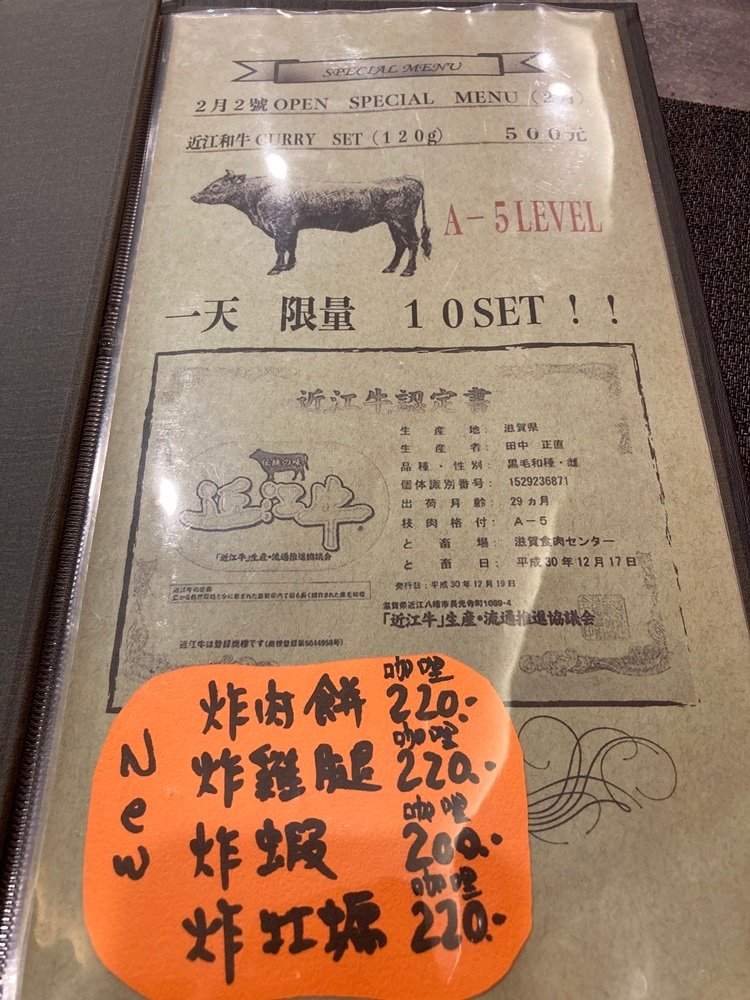 SPECIAL MENU
２月２號 OPEN　SPECIAL　MENU（２月）
近江和牛 CURRY　SET（１２０g）　　５００元
A－５LEVEL
一天　限量　１０SET！！
近江牛認定書
生産地：滋賀県
生産者：田中　正直
品種・性別：黒毛和種・雌
個体識別番号：1529236871
出荷月齢：29ヵ月
枝肉格付：A－5
と畜場：滋賀食肉センター
と畜日：平成30年12月17日
発行日：平成30年12月19日
滋賀県近江八幡市長光寺町1089-4
「近江牛」生産・流通推進協議会
伝統の味
近江牛
「近江牛」生産・流通推進協議会
近江牛の定義
近江牛は登録商標です
New
炸肉餅 咖哩 220.-
炸雞腿 咖哩 220.-
炸蝦 咖哩 200.-
炸牡蠣 咖哩 220.-